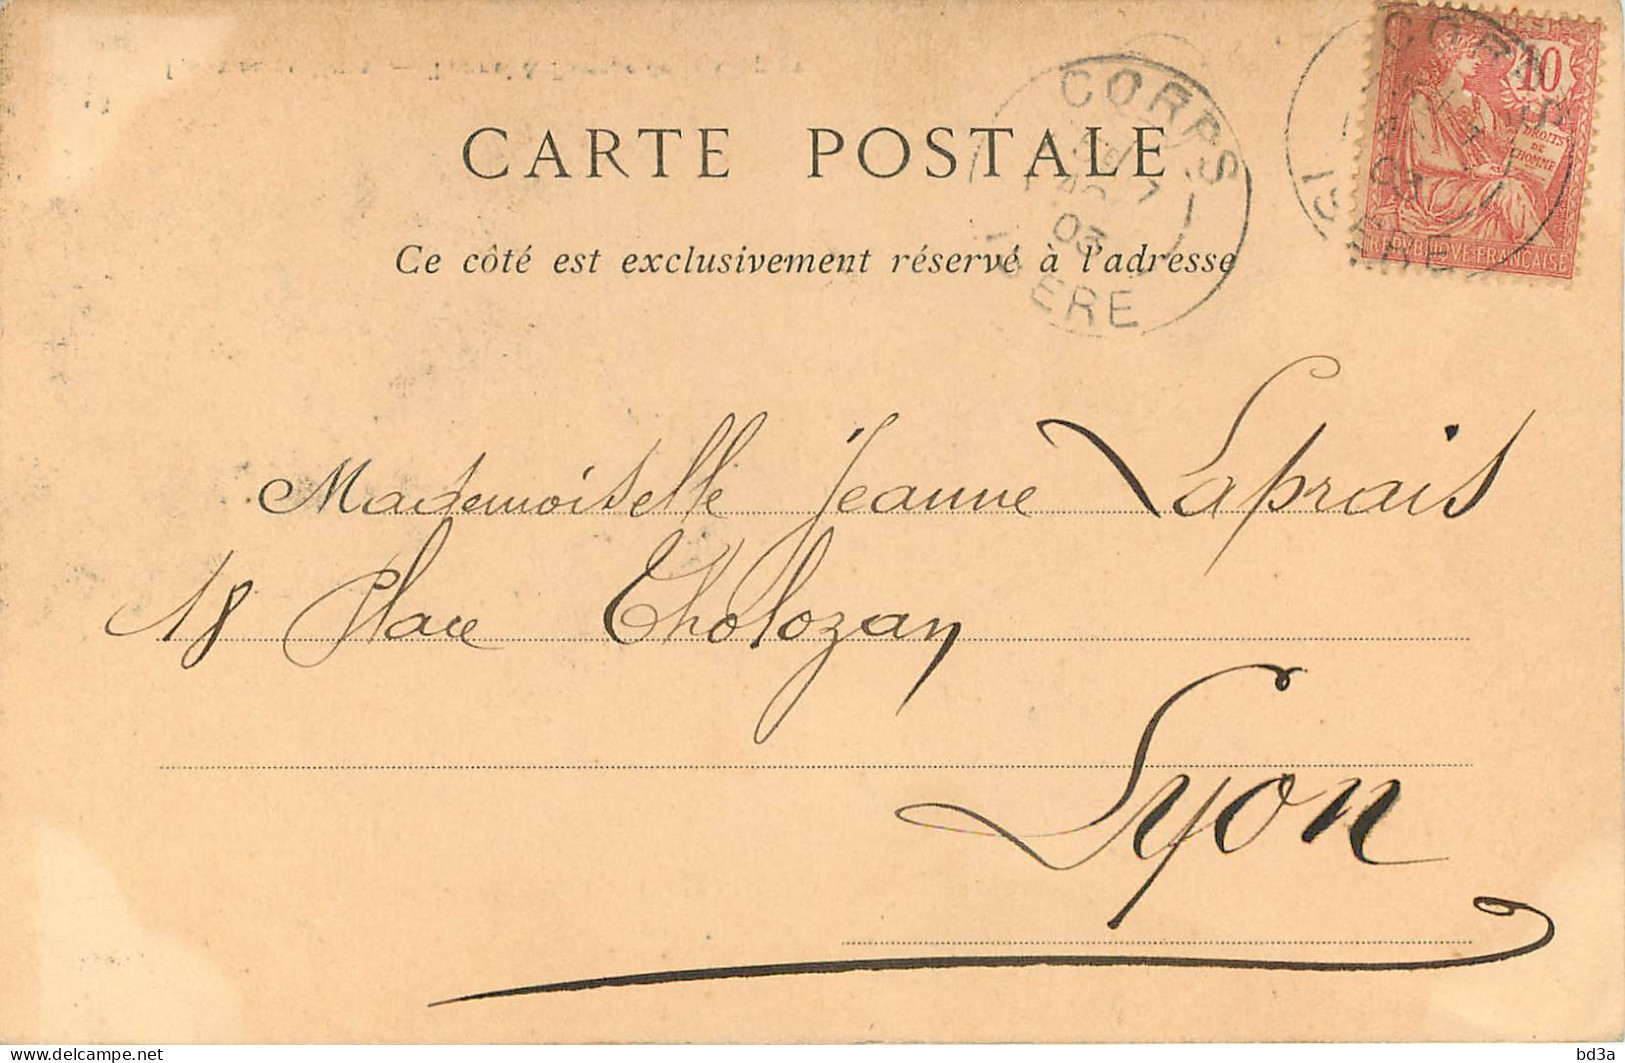 CARTE POSTALE
Ce côté est exclusivement réservé à l'adresse
CORPS
7
03
ISERE
CORPS
03
ISERE
POSTES
10
DROITS
DE
L'HOMME
REPVBLIQVE·FRANÇAISE
Mademoiselle Jeanne Laprais
18 Place Tholozan
Lyon
www.delcampe.net
bd3a